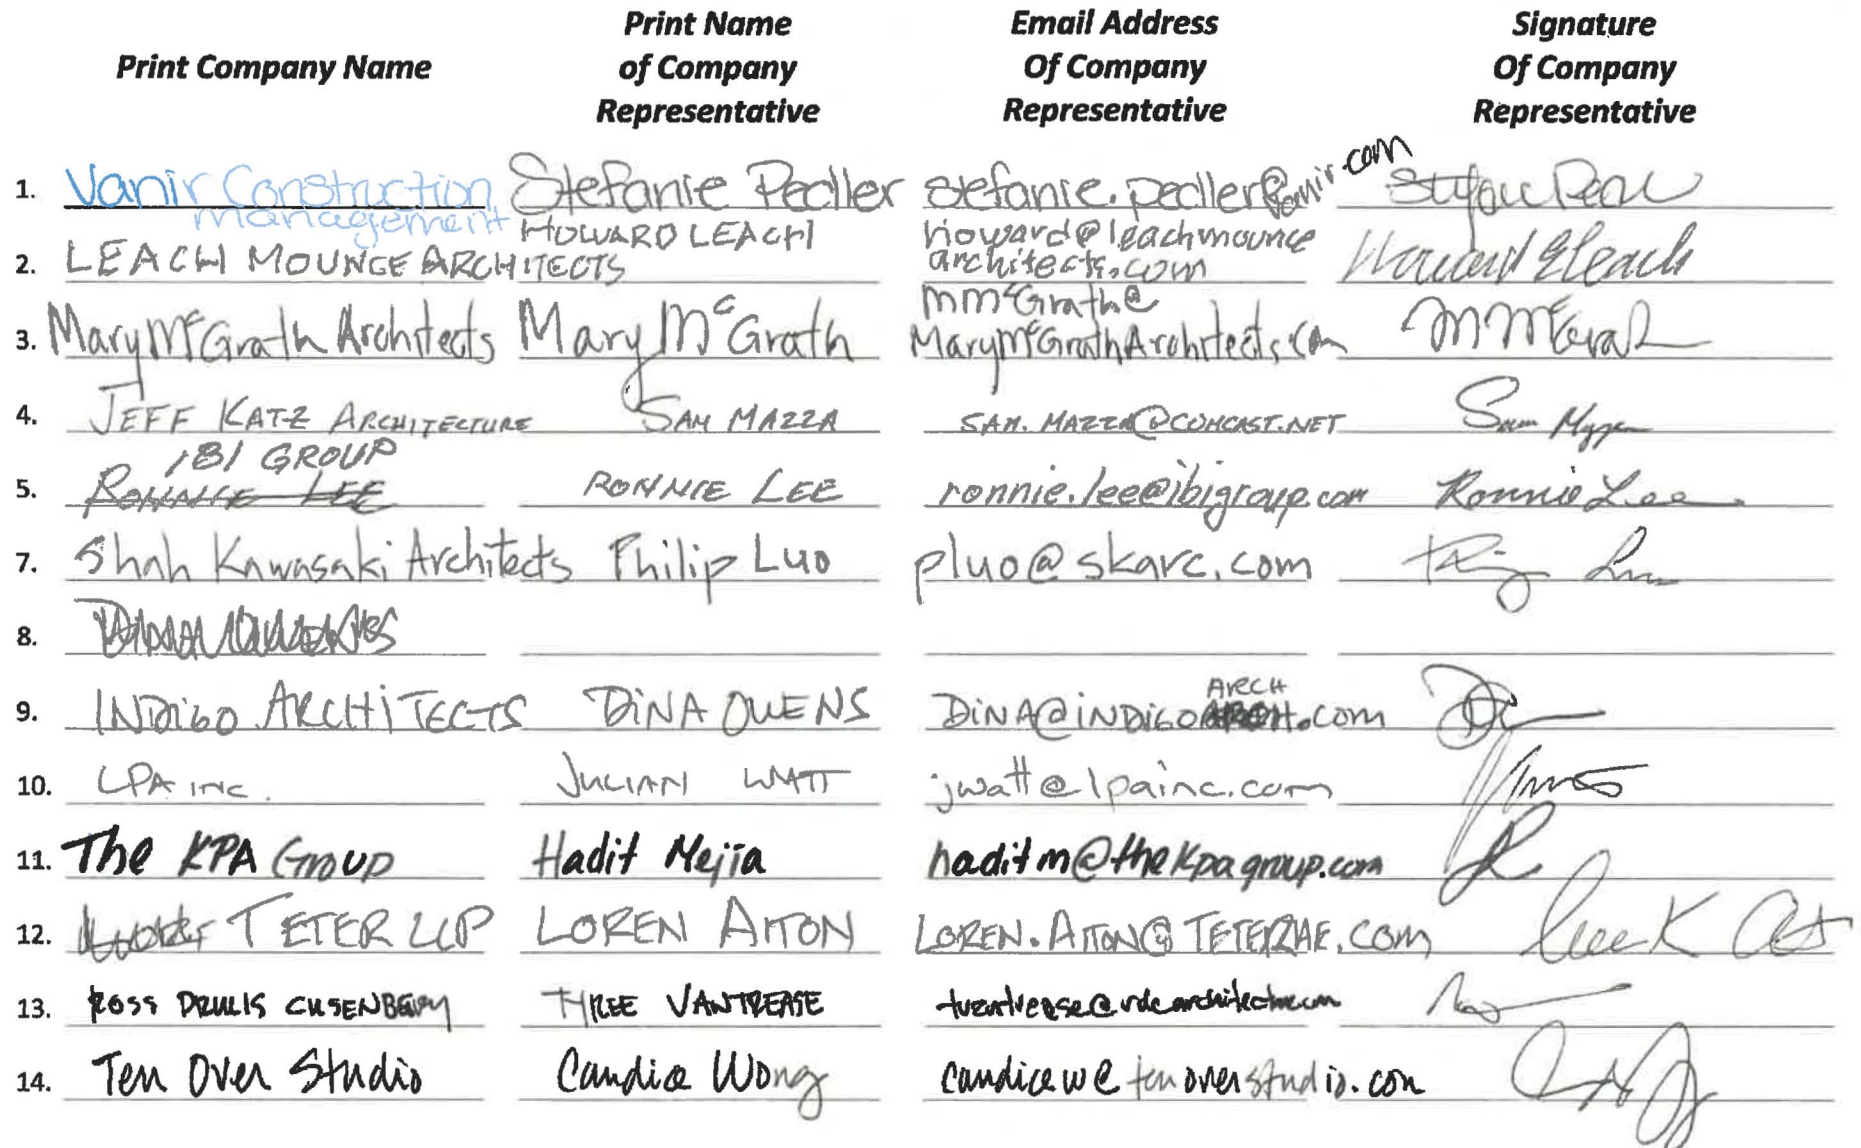 Print Company Name
Print Name of Company Representative
Email Address Of Company Representative
Signature Of Company Representative
1. Vanir Construction management Stefanie Pedller stefanie.pedller@vanir.com
2. LEACH MOUNCE ARCHITECTS HOWARD LEACH howard@leachmounce architects.com Howard E Leach
3. Mary McGrath Architects Mary McGrath mmcGrath@ MaryMcGrathArchitects.com MMcGrath
4. JEFF KATZ ARCHITECTURE SAM MAZZA SAM.MAZZA@COMCAST.NET Sam
5. IBI GROUP RONNIE LEE RONNIE LEE ronnie.lee@ibigroup.com Ronnie Lee
7. Shah Kawasaki Architects Philip Luo pluo@skarc.com
8.
9. INDIGO ARCHITECTS DINA OWENS DINA@INDIGO ARCH.com
10. LPA INC. JULIAN WATT jwatt@lpainc.com
11. The KPA Group Hadit Mejia haditm@thekpagroup.com
12. TETER LLP LOREN AITON LOREN.AITON@TETERAE.com
13. ROSS DRULIS CUSENBERY TYREE VANTREASE
14. Ten Over Studio Candice Wong candicew@tenoverstudio.com